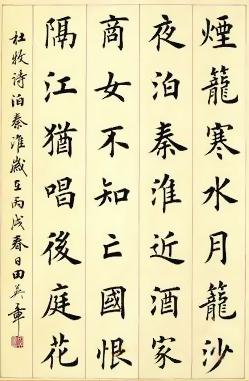 煙籠寒水月籠沙
夜泊秦淮近酒家
商女不知亡國恨
隔江猶唱後庭花
杜牧诗泊秦淮歲在丙戌春日田英章